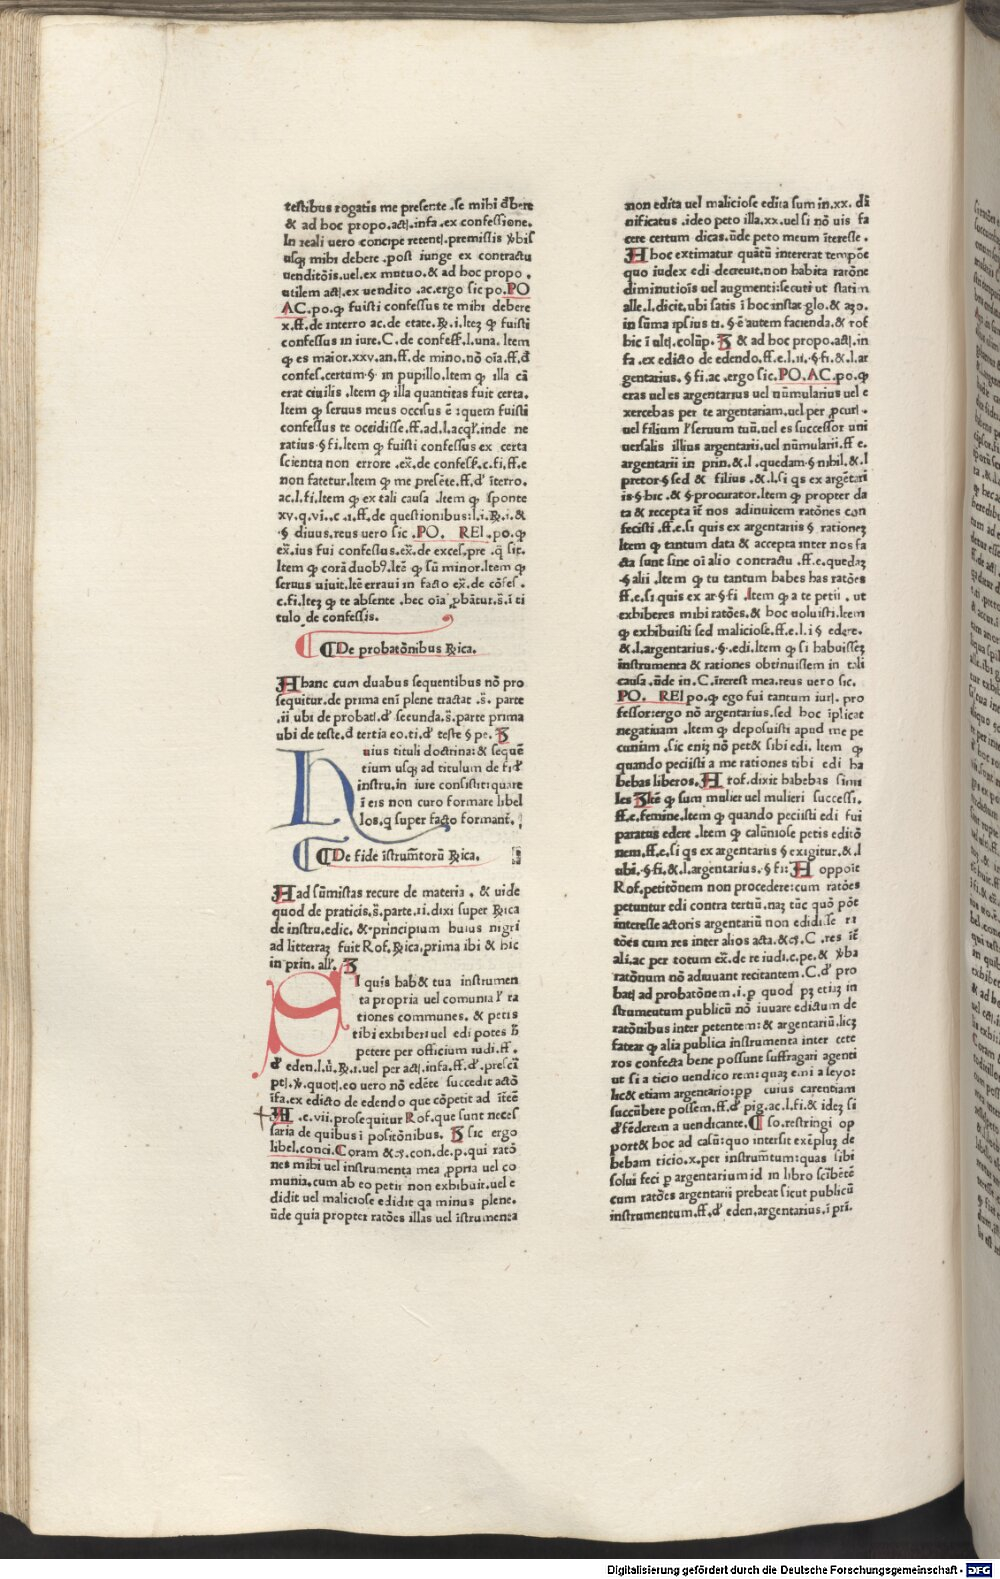 testibus rogatis me presente .se mihi đbere
& ad hoc propo.act͛.infa.ex confessione.
In reali uero concipe retent͛.premissis ꝟbis
usq; mihi debere .post iunge ex contractu
uenditõis.uel.ex mutuo.& ad hoc propo .
utilem act͛.ex uendito .ac.ergo sic po.PO
AC.po.ꝙ fuisti confessus te mihi debere
x.ff.de interro ac.de etate.℞.i.Itez ꝙ fuisti
confessus in iure.C.de confess.l.una.Item
ꝙ es maior.xxv.an.ff.de mino.nõ oĩa.ff.đ
confes.certum.§. in pupillo.Item ꝙ illa cã
erat ciuilis .Item ꝙ illa quantitas fuit certa.
Item ꝙ seruus meus occisus ẽ :quem fuisti
confessus te occidisse.ff.ad.l.acql͛.inde ne
ratius.§ fi.Item ꝙ fuisti confessus ex certa
scientia non errore .ex̃.de confess.c.fi.ff.e
non fatetur.Item ꝙ me presẽte.ff.d͛ ĩterro.
ac.l.fi.Item ꝙ ex tali causa .Item ꝙ sponte
xv.q.vi..c .1.ff.de questionibus:l.i.℞.i.&
.§ diuus.reus uero sic .PO. REI .po.ꝙ
ex̃.ius fui confessus.ex̃.de exces.pre .q̃ sit.
Item ꝙ corã duobꝰ.Itẽ ꝙ sũ minor.Item ꝙ
seruus uiuit.Itẽ erraui in facto ex̃.de cõfes.
c.fi.Itez ꝙ te absente .hec oĩa ꝓbãtur.s̃.i ti
tulo de confessis.
¶ De probatõnibus ℞ica.
H hanc cum duabus sequentibus nõ pro
sequitur.de prima enĩ plene tractat .s̃. parte
.ii ubi de probat͛.d͛ secunda.s̃.parte prima
ubi de teste.d tertia eo.ti.d͛ teste § pe. B
Huius tituli doctrina:& sequẽ
tium usq; ad titulum de fid͛
instru.in iure consistit:quare
ĩ eis non curo formare libel
los.q super facto formant͛.
¶ De fide ĩstrum̃torũ ℞ica.
H ad sũmistas recure de materia . & uide
quod de praticis.s̃.parte.ii.dixi super ℞ica
de instru.edic. & principium huius nigri
ad litteraz fuit Rof.℞ica.prima ibi & hic
in prin. all͛. B
SI quis hab& tua instrumen
ta propria uel comunia l͛ ra
tiones communes. & petis
tibi exhiberi uel edi potes h̃
petere per officium iudi.ff.
d͛ eden.l.ů.℞.1.uel per act͛.infa.ff.d͛.presci̇̃
pt͛.ꝟ.quot͛.eo uero nõ edẽte succedit actõ
ĩfa.ex edicto de edendo que cõpetit ad ĩteẽ
H .e.vii.prosequitur Rof.que sunt neces
saria de quibus i positõnibus. B sic ergo
libel.conci.Coram &c̃.con.de.p.qui ratõ
nes mihi uel instrumenta mea ꝓpria uel co
munia.cum ab eo petii non exhibuit.uel e
didit uel maliciose edidit qa minus plene.
ũde quia propter ratões illas uel ĩstrumenta
non edita uel maliciose edita sum in.xx. dã
nificatus .ideo peto illa.xx.uel si nõ uis fa
cere certum dicas.ũde peto meum ĩteresse .
H hoc extimatur quãtũ intererat tempoẽ
quo iudex edi decreuit.non habita ratõne
diminutiois̃ uel augmenti:secuti ut statim
alle.l.dicit.ubi satis ĩ hoc instãt glo.& azo.
in sũma ipsius ti. § ẽ autem facienda.& rof
hic ĩ ult͛.colũp. B & ad hoc propo.act͛.in
fa .ex edicto de edendo.ff.e.l.ii.§.fi.& l.ar
gentarius. § fi.ac .ergo sic.PO.AC.po.ꝙ
eras uel es argentarius uel nũmularius uel e
xercebas per te argentariam.uel per ꝓcurl .
uel filium l͛ seruum tuũ.uel es successor uni
uersalis illius argentarii.uel nũmularii.ff e.
argentarii in prin.& l .quedam § nihil.& l
pretor § sed & filius .& l.si qs ex argẽtari
is § hic .& § procurator.Item ꝙ propter da
ta & recepta iẽ nos adinuicem ratões con
fecisti .ff.e.si quis ex argentariis § rationez
Item ꝙ tantum data & accepta inter nos fa
cta sunt sine oĩ alio contractu .ff.e.quedaz
§ alii .Item ꝙ tu tantum habes has ratões
ff.e.si quis ex ar § fi .Item ꝙ a te petii . ut
exhiberes mihi ratões.& hoc noluisti.Item
ꝙ exhibuisti sed maliciose.ff.e.l.i § edere.
& l.argentarius.§.edi.Item ꝙ si habuissez
instrumenta & rationes obtinuissem in tali
causa .ũde in.C.iterest mea.reus uero sic.
PO. REI po.ꝙ ego fui tantum iurl. pro
fessor:ergo nõ argentarius.sed hoc ĩplicat
negatiuam .Item ꝙ deposuisti apud me pe
cuniam .sic eniz nõ pet& sibi edi. Item ꝙ
quando peciisti a me rationes tibi edi ha
bebas liberos. H rof.dixit habebas simi
les B Itẽ ꝙ sum mulier uel mulieri successi.
ff.e.femine.Item ꝙ quando peciisti edi fui
paratus edere .Item ꝙ calũniose petis editõ
nem.ff.e.si qs ex argentariis § exigitur.& l
ubi.§ fi.& l.argentarius. § fi: H oppoĩt
Rof.petitõnem non procedere:cum ratões
petuntur edi contra tertiũ.naz tũc quõ põt
interesse actoris argentariũ non edidisse ra
tões cum res inter alios acta.&c̃.C .res iẽ
ali.ac per totum ex̃.de re iudi.c.pe.& ꝟba
ratõnum nõ adiuuant recitantem.C.d͛ pro
bat͛ ad probatõnem.i.p quod pz etiiz in
strumentum publicũ nõ iuuare edictum de
ratõnibus inter petentem:& argentariũ.licz
fatear ꝙ alia publica instrumenta inter cete
ros confecta bene possunt suffragari agenti
ut si a ticio uendico rem:quaz emi a seyo:
lic& etiam argentario:pp cuius carentiam
succũbere possem.ff.d͛ pig.ac.l.fi.& idez si
đfẽderem a uendicante.¶ so.restringi op
port& hoc ad casũ:quo intersit exẽpluz de
bebam ticio.x.per instrum̃tum:quas sibi
solui feci p argentarium id in libro scĩbẽtẽ
cum ratões argentarii prebeat sicut publicũ
instrumentum.ff.d͛ eden.argentarius.ĩ prĩ.
Digitalisierung gefördert durch die Deutsche Forschungsgemeinschaft - DFG